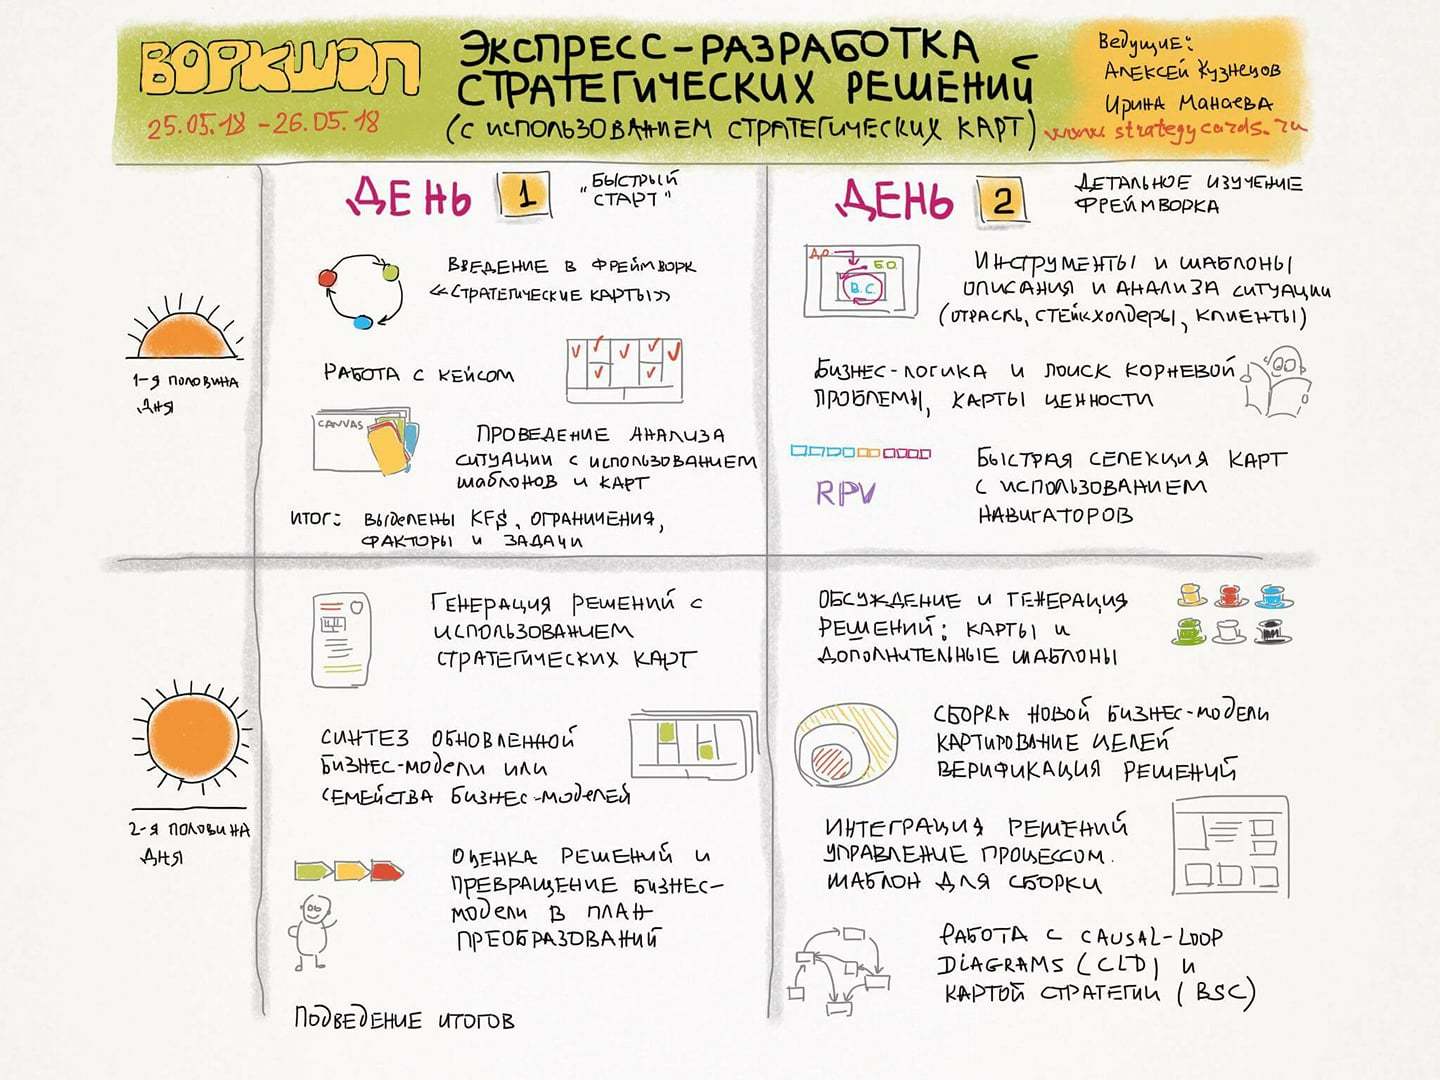 ВОРКШОП
25.05.18 – 26.05.18
ЭКСПРЕСС-РАЗРАБОТКА
СТРАТЕГИЧЕСКИХ РЕШЕНИЙ
(С ИСПОЛЬЗОВАНИЕМ СТРАТЕГИЧЕСКИХ КАРТ)
Ведущие:
АЛЕКСЕЙ КУЗНЕЦОВ
ИРИНА МАНАЕВА
www.strategycards.ru
1-я ПОЛОВИНА
ДНЯ
ДЕНЬ 1
„БЫСТРЫЙ
СТАРТ"
ВВЕДЕНИЕ В ФРЕЙМВОРК
«СТРАТЕГИЧЕСКИЕ КАРТЫ»
РАБОТА С КЕЙСОМ
CANVAS
ПРОВЕДЕНИЕ АНАЛИЗА
СИТУАЦИИ С ИСПОЛЬЗОВАНИЕМ
ШАБЛОНОВ И КАРТ
ИТОГ: ВЫДЕЛЕНЫ KFS, ОГРАНИЧЕНИЯ,
ФАКТОРЫ И ЗАДАЧИ
ДЕНЬ 2
ДЕТАЛЬНОЕ ИЗУЧЕНИЕ
ФРЕЙМВОРКА
Д.О.
Б.О.
В.С.
ИНСТРУМЕНТЫ И ШАБЛОНЫ
ОПИСАНИЯ И АНАЛИЗА СИТУАЦИИ
(ОТРАСЛЬ, СТЕЙКХОЛДЕРЫ, КЛИЕНТЫ)
БИЗНЕС-ЛОГИКА И ПОИСК КОРНЕВОЙ
ПРОБЛЕМЫ, КАРТЫ ЦЕННОСТИ
RPV
БЫСТРАЯ СЕЛЕКЦИЯ КАРТ
С ИСПОЛЬЗОВАНИЕМ
НАВИГАТОРОВ
2-я ПОЛОВИНА
ДНЯ
ГЕНЕРАЦИЯ РЕШЕНИЙ С
ИСПОЛЬЗОВАНИЕМ
СТРАТЕГИЧЕСКИХ КАРТ
СИНТЕЗ ОБНОВЛЕННОЙ
БИЗНЕС-МОДЕЛИ ИЛИ
СЕМЕЙСТВА БИЗНЕС-МОДЕЛЕЙ
ОЦЕНКА РЕШЕНИЙ И
ПРЕВРАЩЕНИЕ БИЗНЕС-
МОДЕЛИ В ПЛАН
ПРЕОБРАЗОВАНИЙ
ПОДВЕДЕНИЕ ИТОГОВ
ОБСУЖДЕНИЕ И ГЕНЕРАЦИЯ
РЕШЕНИЙ: КАРТЫ И
ДОПОЛНИТЕЛЬНЫЕ ШАБЛОНЫ
СБОРКА НОВОЙ БИЗНЕС-МОДЕЛИ
КАРТИРОВАНИЕ ЦЕЛЕЙ
ВЕРИФИКАЦИЯ РЕШЕНИЙ
ИНТЕГРАЦИЯ РЕШЕНИЙ
УПРАВЛЕНИЕ ПРОЦЕССОМ.
ШАБЛОН ДЛЯ СБОРКИ
РАБОТА С CAUSAL-LOOP
DIAGRAMS (CLD) И
КАРТОЙ СТРАТЕГИИ (BSC)